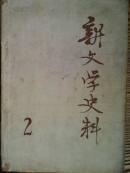 新文学史料
2